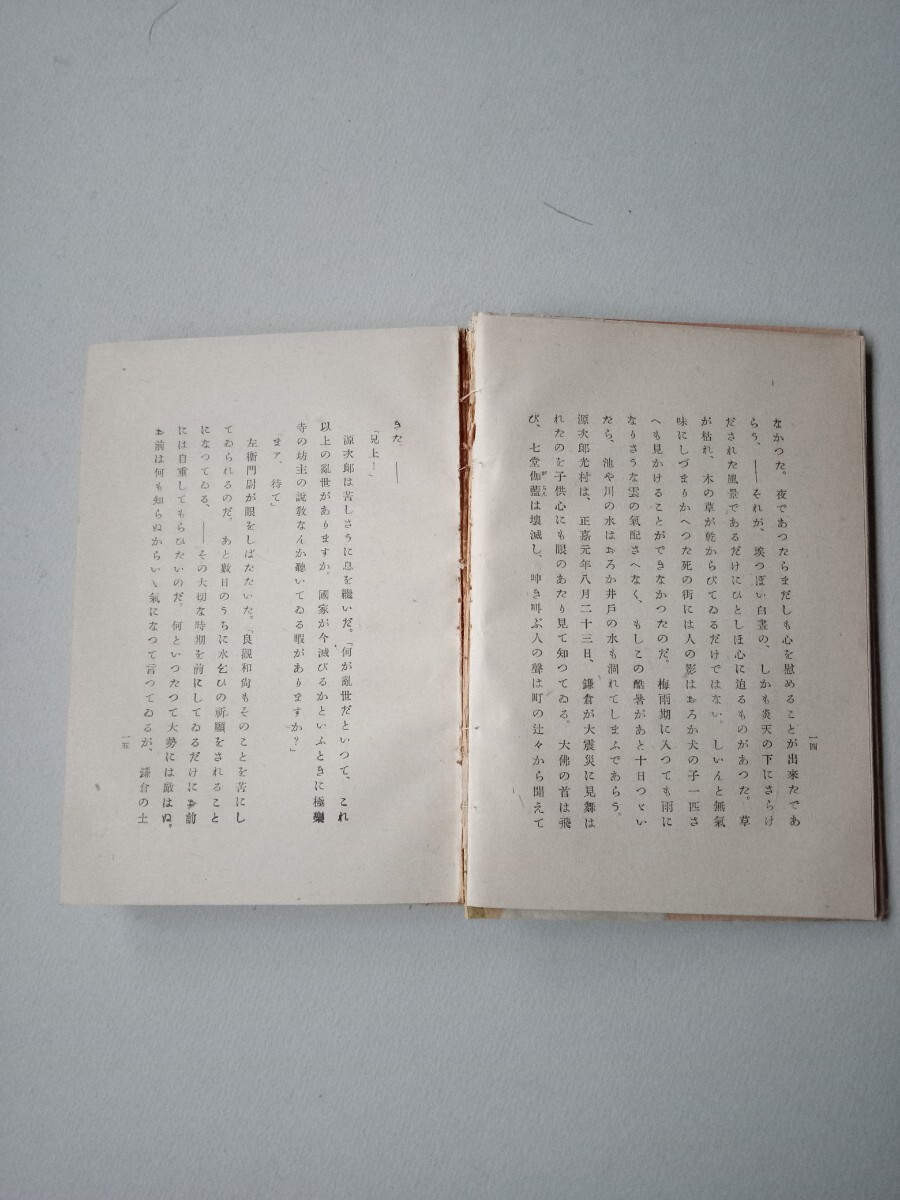 一四
なかつた。夜であつたらまだしも心を慰めることが出來たであ
らう、――それが、埃つぽい白晝の、しかも炎天の下にさらけ
だされた風景であるだけにひとしほ心に迫るものがあつた。草
が枯れ、木の草が乾からびてゐるだけではない。しいんと無氣
味にしづまりかへつた死の街には人の影はおろか犬の子一匹さ
へも見かけることができなかつたのだ。梅雨期に入つても雨に
なりさうな雲の氣配さへなく、もしこの酷暑があと十日つゞい
たら、池や川の水はおろか井戸の水も涸れてしまふであらう。
源次郎光村は、正嘉元年八月二十三日、鎌倉が大震災に見舞は
れたのを子供心にも眼のあたり見て知つてゐる。大佛の首は飛
び、七堂伽藍は壞滅し、呻き叫ぶ人の聲は町の辻々から聞えて
きた――
「兄上！」
源次郎は苦しさうに息を繼いだ。「何が亂世だといつて、これ
以上の亂世がありますか。國家が今滅びるかといふときに極樂
寺の坊主の説教なんか聽いてゐる暇がありますか？」
「まァ、待て」
左衞門尉が眼をしばたたいた。「良觀和尚もそのことを苦にし
てゐられるのだ。あと數日のうちに水乞ひの祈願をされること
になつてゐる、――その大切な時期を前にしてゐるだけにお前
には自重してもらひたいのだ。何といつたつて大勢には敵はぬ。
お前は何も知らぬからいゝ氣になつて言つてゐるが、鎌倉の土
一五